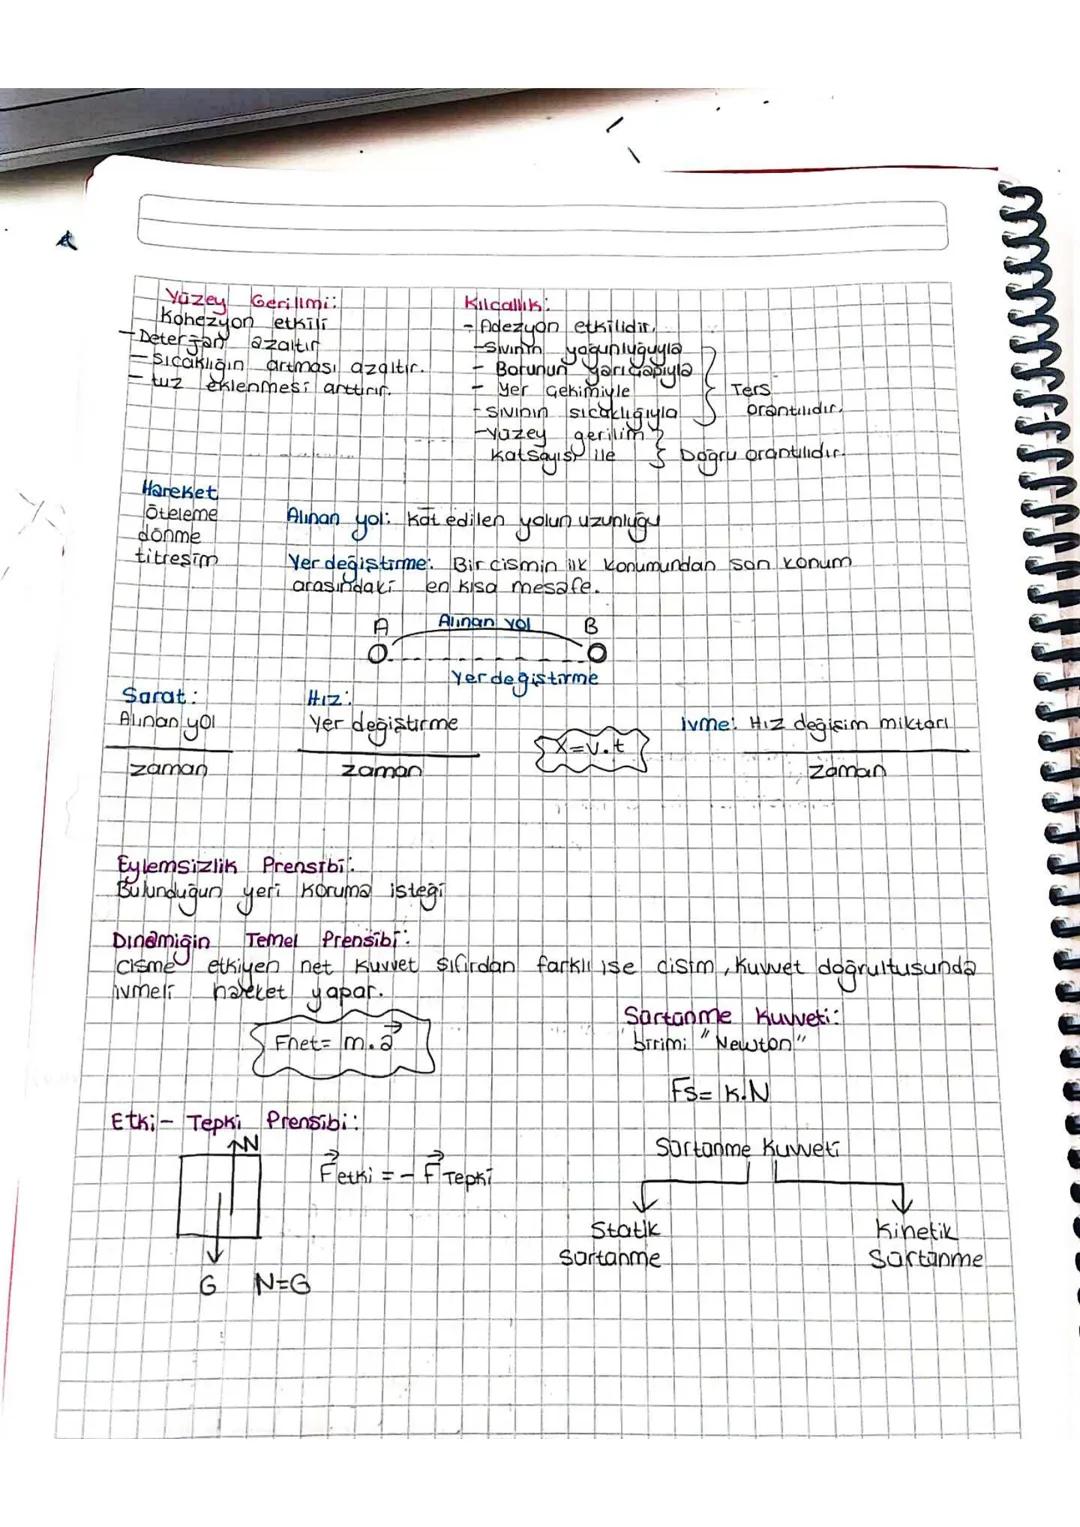 Yüzey Gerilimi:
Kohezyon etkili
- Deterjan azaltır
- Sıcaklığın artması azaltır.
- tuz eklenmesi arttırır.
Kılcallık:
- Adezyon etkilidir.
- Sıvının yoğunluğuyla
- Borunun yarıçapıyla
- Yer Çekimiyle
- Sıvının sıcaklığıyla
Ters
orantılıdır.
- Yüzey gerilim
katsayısı ile
Doğru orantılıdır.
Hareket
öteleme
dönme
titreşim
Alınan yol: Kat edilen yolun uzunluğu
Yer değiştirme: Bir cismin ilk konumundan son konum
arasındaki en kısa mesafe.
A Alınan yol B
Yer değiştirme
Sürat:
Alınan yol
zaman
Hız:
Yer değiştirme
zaman
X=v.t
ivme: Hız değişim miktarı
zaman
Eylemsizlik Prensibi:
Bulunduğun yeri koruma isteği
Dinamiğin Temel Prensibi:
cisme etkiyen net kuvvet sıfırdan farklı ise cisim, kuvvet doğrultusunda
ivmeli hareket yapar.
Fnet= m.a
Sürtünme Kuvveti:
birimi "Newton"
Fs= k.N
Etki - Tepki Prensibi:
N
F etki = - F Tepki
G N=G
Sürtünme Kuvveti
Statik
Sürtünme
Kinetik
Sürtünme